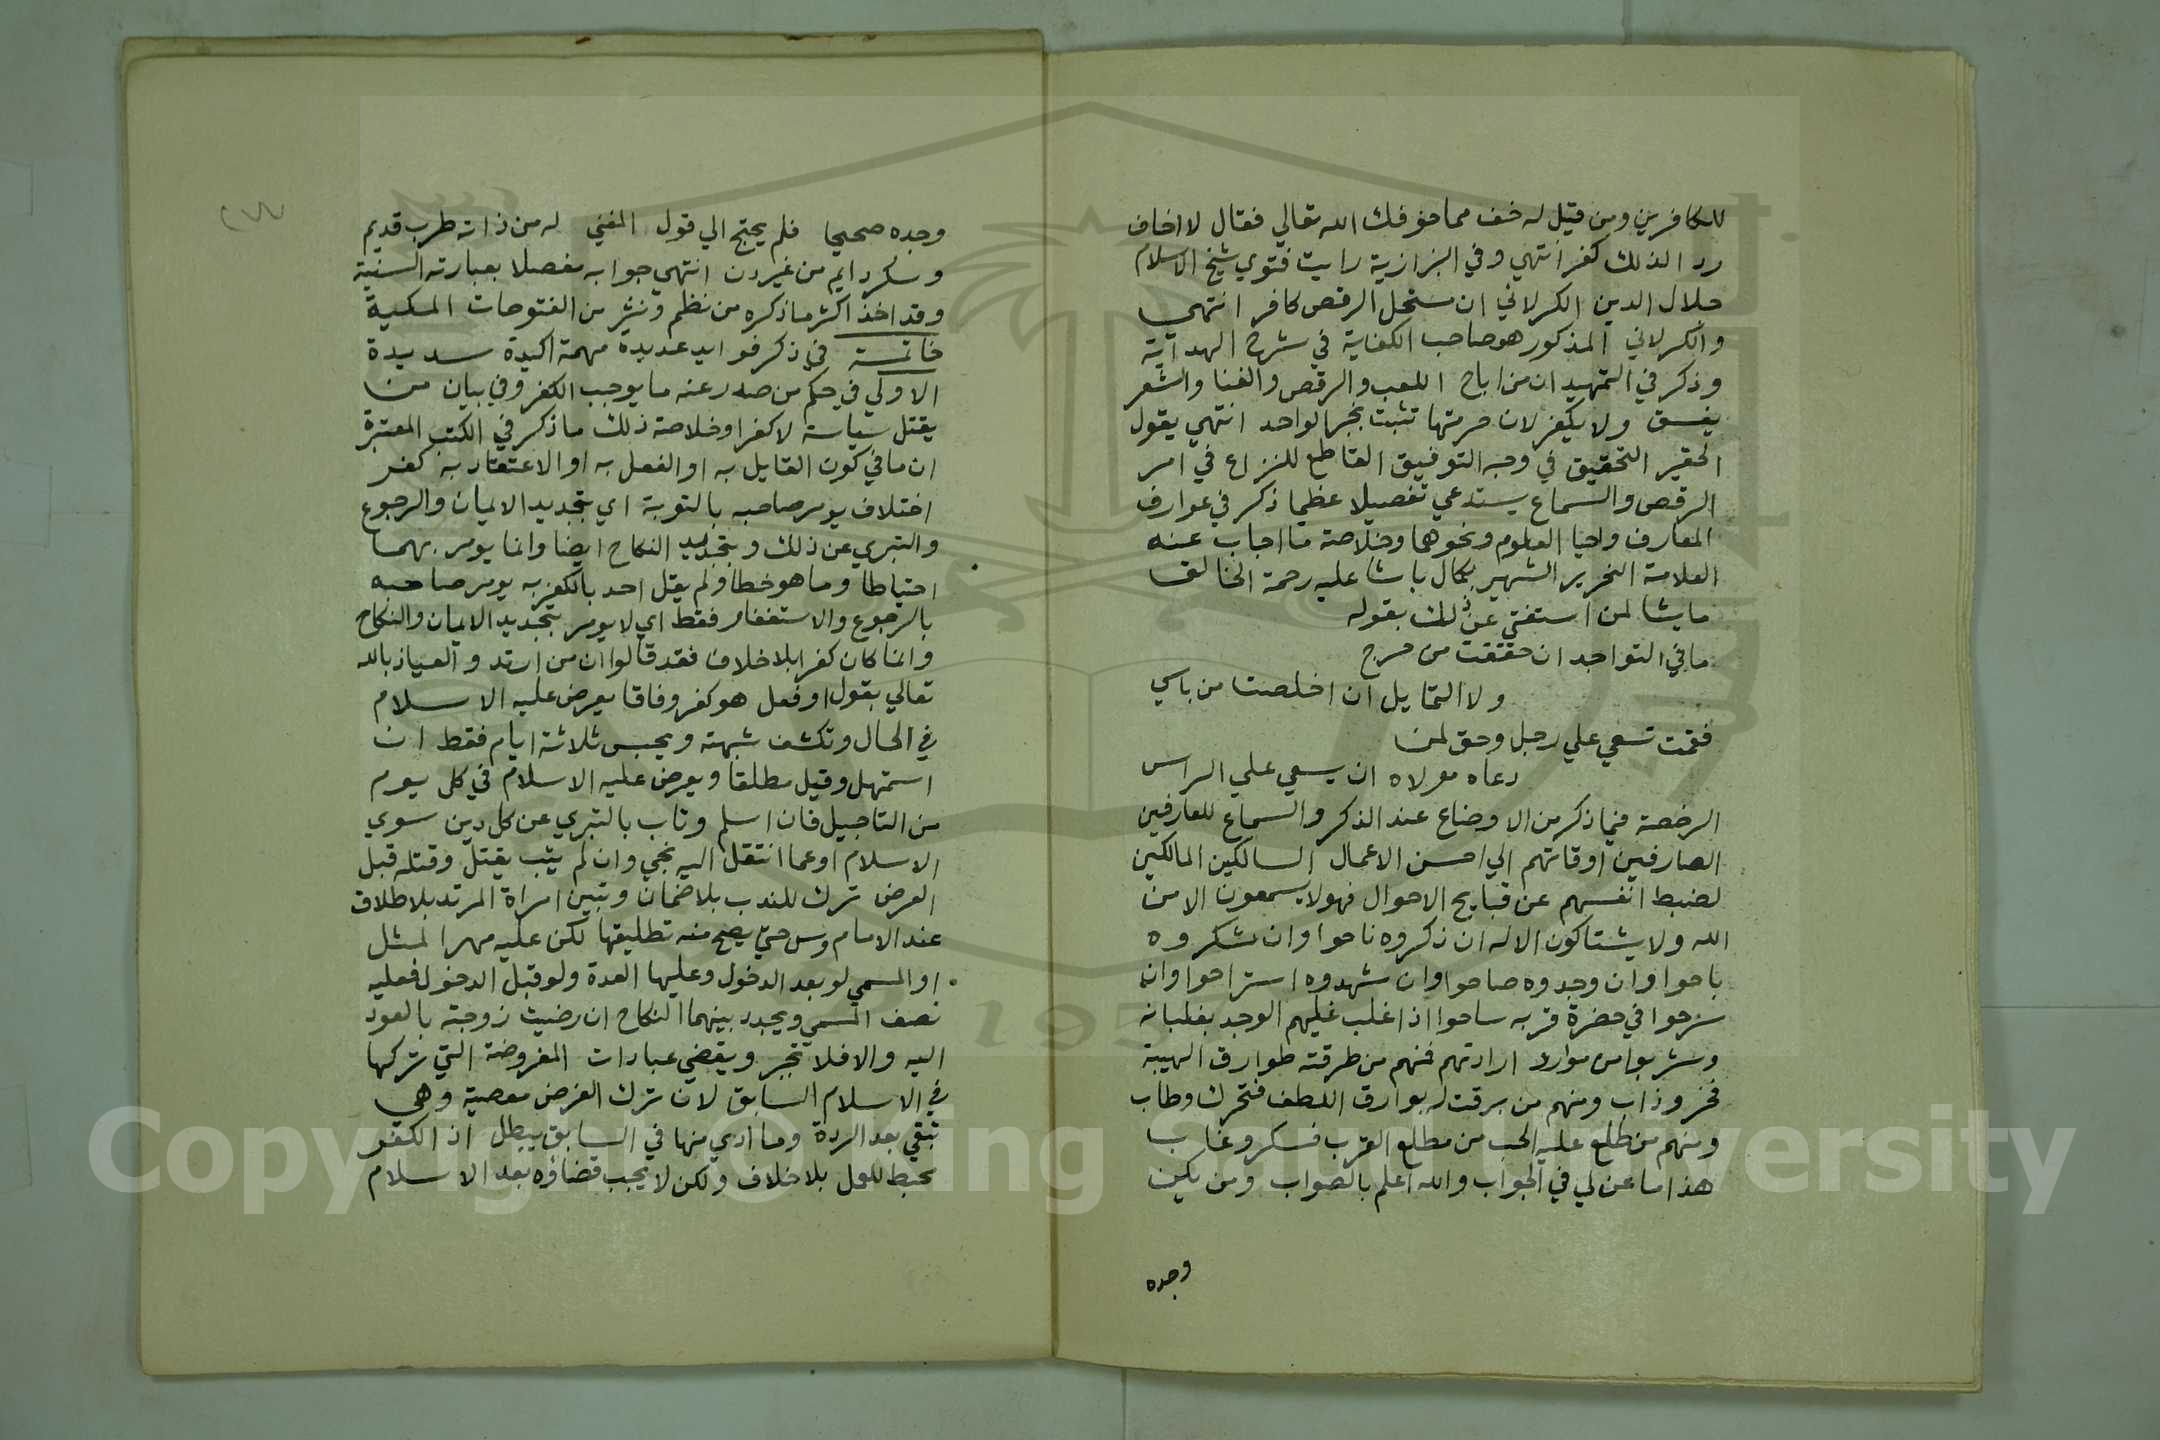 للكافرين ومن قيل له خف مما خوفك الله تعالي فقال لا اخاف
رد الذلك كفر انتهي وفي البزازية رايت فتوي شيخ الاسلام
جلال الدين الكرلاني ان مستحل الرقص كافر انتهي
والكرلاني المذكور هو صاحب الكفاية في شرح الهداية
وذكر في التمهيد ان من اباح اللعب والرقص والغنا والشعر
يفسق ولا يكفر لان حرمتها تثبت بخبر الواحد انتهي يقول
الحقير التحقيق في وجه التوفيق القاطع للنزاع في امر
الرقص والسماع يستدعي تفصيلا عظيما ذكر في عوارف
المعارف واحيا العلوم ونحوهما وخلاصة ما اجاب عنه
العلامة النحرير الشهير بكمال باشا عليه رحمة الخالق
ما يشا لمن استفتي عن ذلك بقوله
ما في التواجد ان حققت من حرج
ولا التمايل ان اخلصت من باس
فقمت تسعي علي رجل وحق لمن
دعاه مولاه ان يسعي علي الراس
الرخصة فيما ذكر من الاوضاع عند الذكر والسماع للعارفين
الصارفين اوقاتهم الي احسن الاعمال السالكين المالكين
لضبط انفسهم عن قبايح الاحوال فهم لا يسمعون الا من
الله ولا يشتاكون الا له ان ذكروه ناحوا وان شكروه
باحوا وان وجدوه صاحوا وان شهدوه استراحوا وان
سرحوا في حضرة قربه ساحوا اذا غلب عليهم الوجد بغلباته
وشربوا من موارد ارادتهم فمنهم من طرقته طوارق الهيبة
فخر وذاب ومنهم من برقت له بوارق اللطف فتحرك وطاب
ومنهم من طلع عليه الحب من مطلع القرب فسكر وغاب
هذا ما عن لي في الجواب والله اعلم بالصواب ومن يكن
وجده
وجده صحيحا فلم يحتج الي قول المغني له من ذاته طرب قديم
وسكر دايم من غير دن انتهي جوابه مفصلا بعبارته السنية
وقد اخذ اكثر ما ذكره من نظم ونثر من الفتوحات المكية
خاتمة في ذكر فوايد عديدة مهمة اكيدة سديدة
الاولي في حكم من صدر عنه ما يوجب الكفر وفي بيان من
يقتل سياسة لا كفرا وخلاصة ذلك ما ذكر في الكتب المعتبرة
ان ما في كون القايل به او الفعل به او الاعتقاد به كفر
اختلاف يومر صاحبه بالتوبة اي بتجديد الايمان والرجوع
والتبري عن ذلك وبتجديد النكاح ايضا وانما يومر بهما
احتياطا وما هو خطا ولم يقل احد بالكفر به يومر صاحبه
بالرجوع والاستغفار فقط اي لا يومر بتجديد الايمان والنكاح
وانما كان كفرا بلا خلاف فقد قالوا ان من ارتد والعياذ بالله
تعالي بقول او فعل هو كفر وفاقا يعرض عليه الاسلام
في الحال وتكشف شبهته ويحبس ثلاثة ايام فقط ان
استمهل وقيل مطلقا ويعرض عليه الاسلام في كل يوم
من التاجيل فان اسلم وتاب بالتبري عن كل دين سوي
الاسلام او عما انتقل اليه نجي وان لم يتب يقتل وقتله قبل
العرض ترك للندب بلا ضمان وتبين امراة المرتد بلا طلاق
عند الامام يصح منه تطليقها لكن عليه مهر المثل
او المسمي لو بعد الدخول وعليها العدة ولو قبل الدخول فعليه
نصف المسمي ويجدد بينهما النكاح ان رضيت زوجته بالعود
اليه والا فلا تجبر ويقضي عبادات المفروضة التي تركها
في الاسلام السابق لان ترك الفرض معصية وهي
تبقي بعد الردة وما ادي منها في السابق يبطل اذ الكفر
محبط للعمل بلا خلاف ولكن لا يجب قضاؤه بعد الاسلام
Copyright © King Saud University
1957